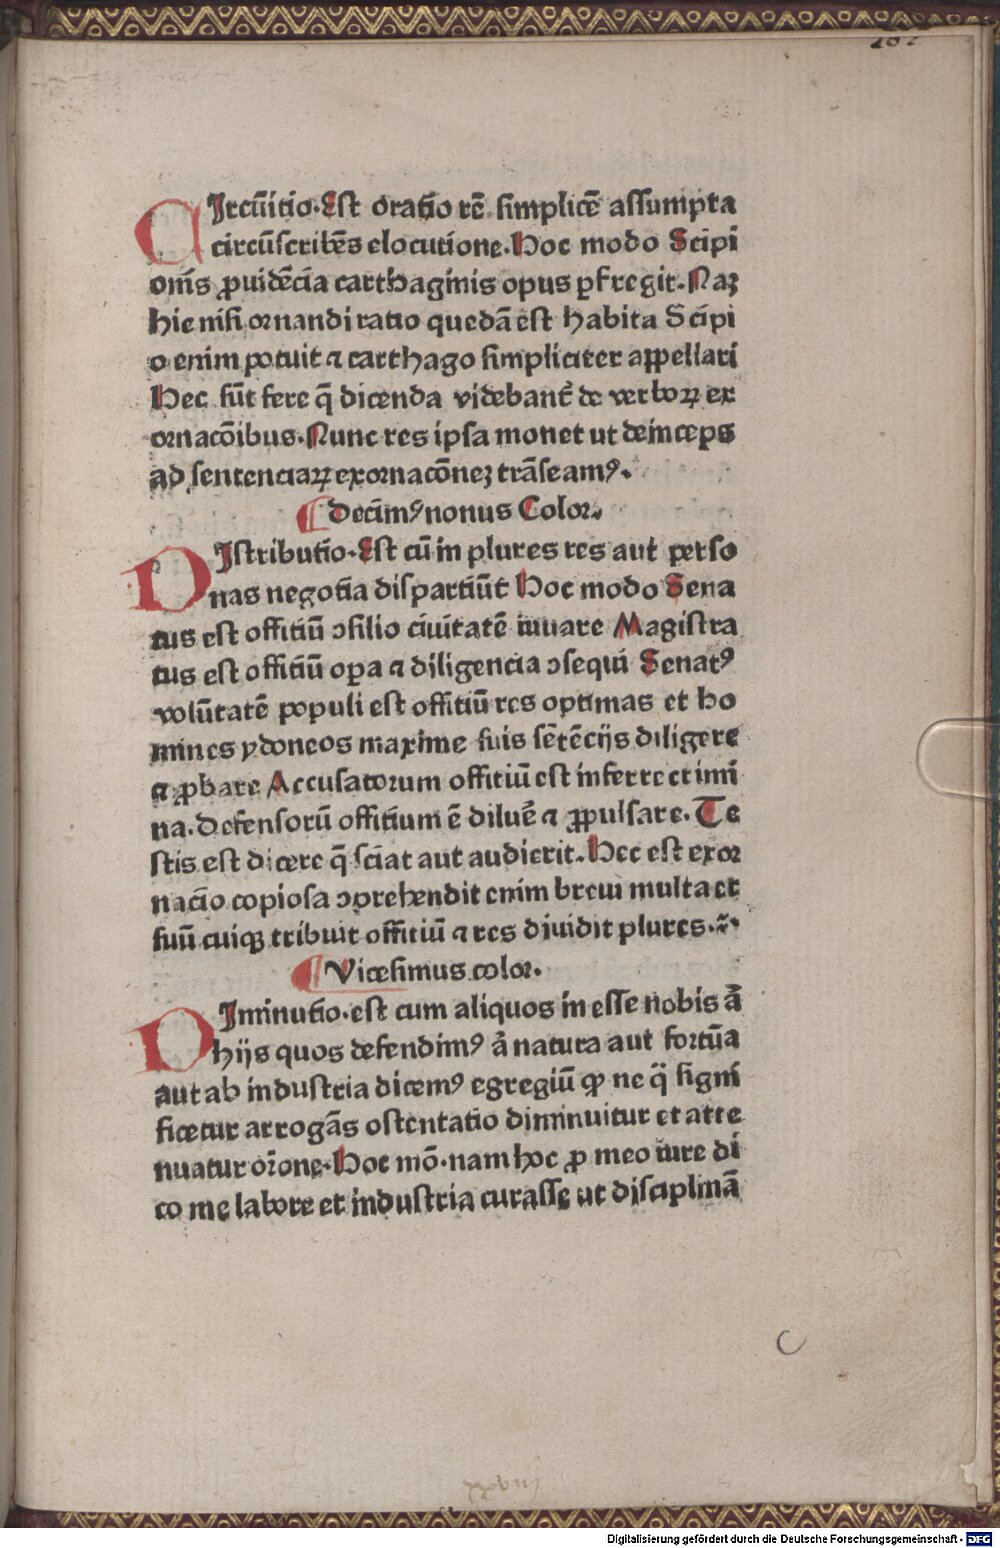 167
CIrcūitio.Est oratio rē simplicē assumpta
circūscribēs elocutione.Hoc modo Scipi
onīs ꝓuidēcia carthaginis opus ꝑfregit.Naꝫ
hic nisi ornandi ratio quedā est habita Scipi
o enim potuit ⁊ carthago simpliciter aꝓpellari
Hec sūt fere q̄ dicenda videbant᷑ de verboꝝ ex
ornacōibus.Nunc res ipsa monet ut deinceps
ad sentenciaꝝ exornacōneꝫ trāseamꝰ.
¶Decimꝰnonus Color.
DIstributio.Est cū in plures res aut perso
nas negotia dispartiūt Hoc modo Sena
tus est offitiū ↄsilio ciuitatē iuuare Magistra
tus est offitiū oꝑa ⁊ diligencia ↄsequi Senatꝰ
volūtatē populi est offitiū res optimas et ho
mines ydoneos maxime suis sētēcijs diligere
⁊ ꝓbare Accusatorum offitiū est inferre crimi
na.Defensorū offitium ē diluē ⁊ ꝓpulsare.Te
stis est dicere q̄ sciat aut audierit.Hec est exor
nacio copiosa ↄprehendit enim breui multa et
suū cuiqꝫ tribuit offitiū ⁊ res diuidit plures.
¶Vicesimus color.
DIminutio.est cum aliquos in esse nobis ā
hijs quos defendimꝰ ā natura aut fortūa
aut ab industria dicemꝰ egregiū ꝙ ne q̄ signi
ficetur arrogās ostentatio diminuitur et atte
nuatur orōne.Hoc mō.nam hoc ꝓ meo iure di
co me labore et industria curasse ut disciplinā
C
xxviij
Digitalisierung gefördert durch die Deutsche Forschungsgemeinschaft - DFG